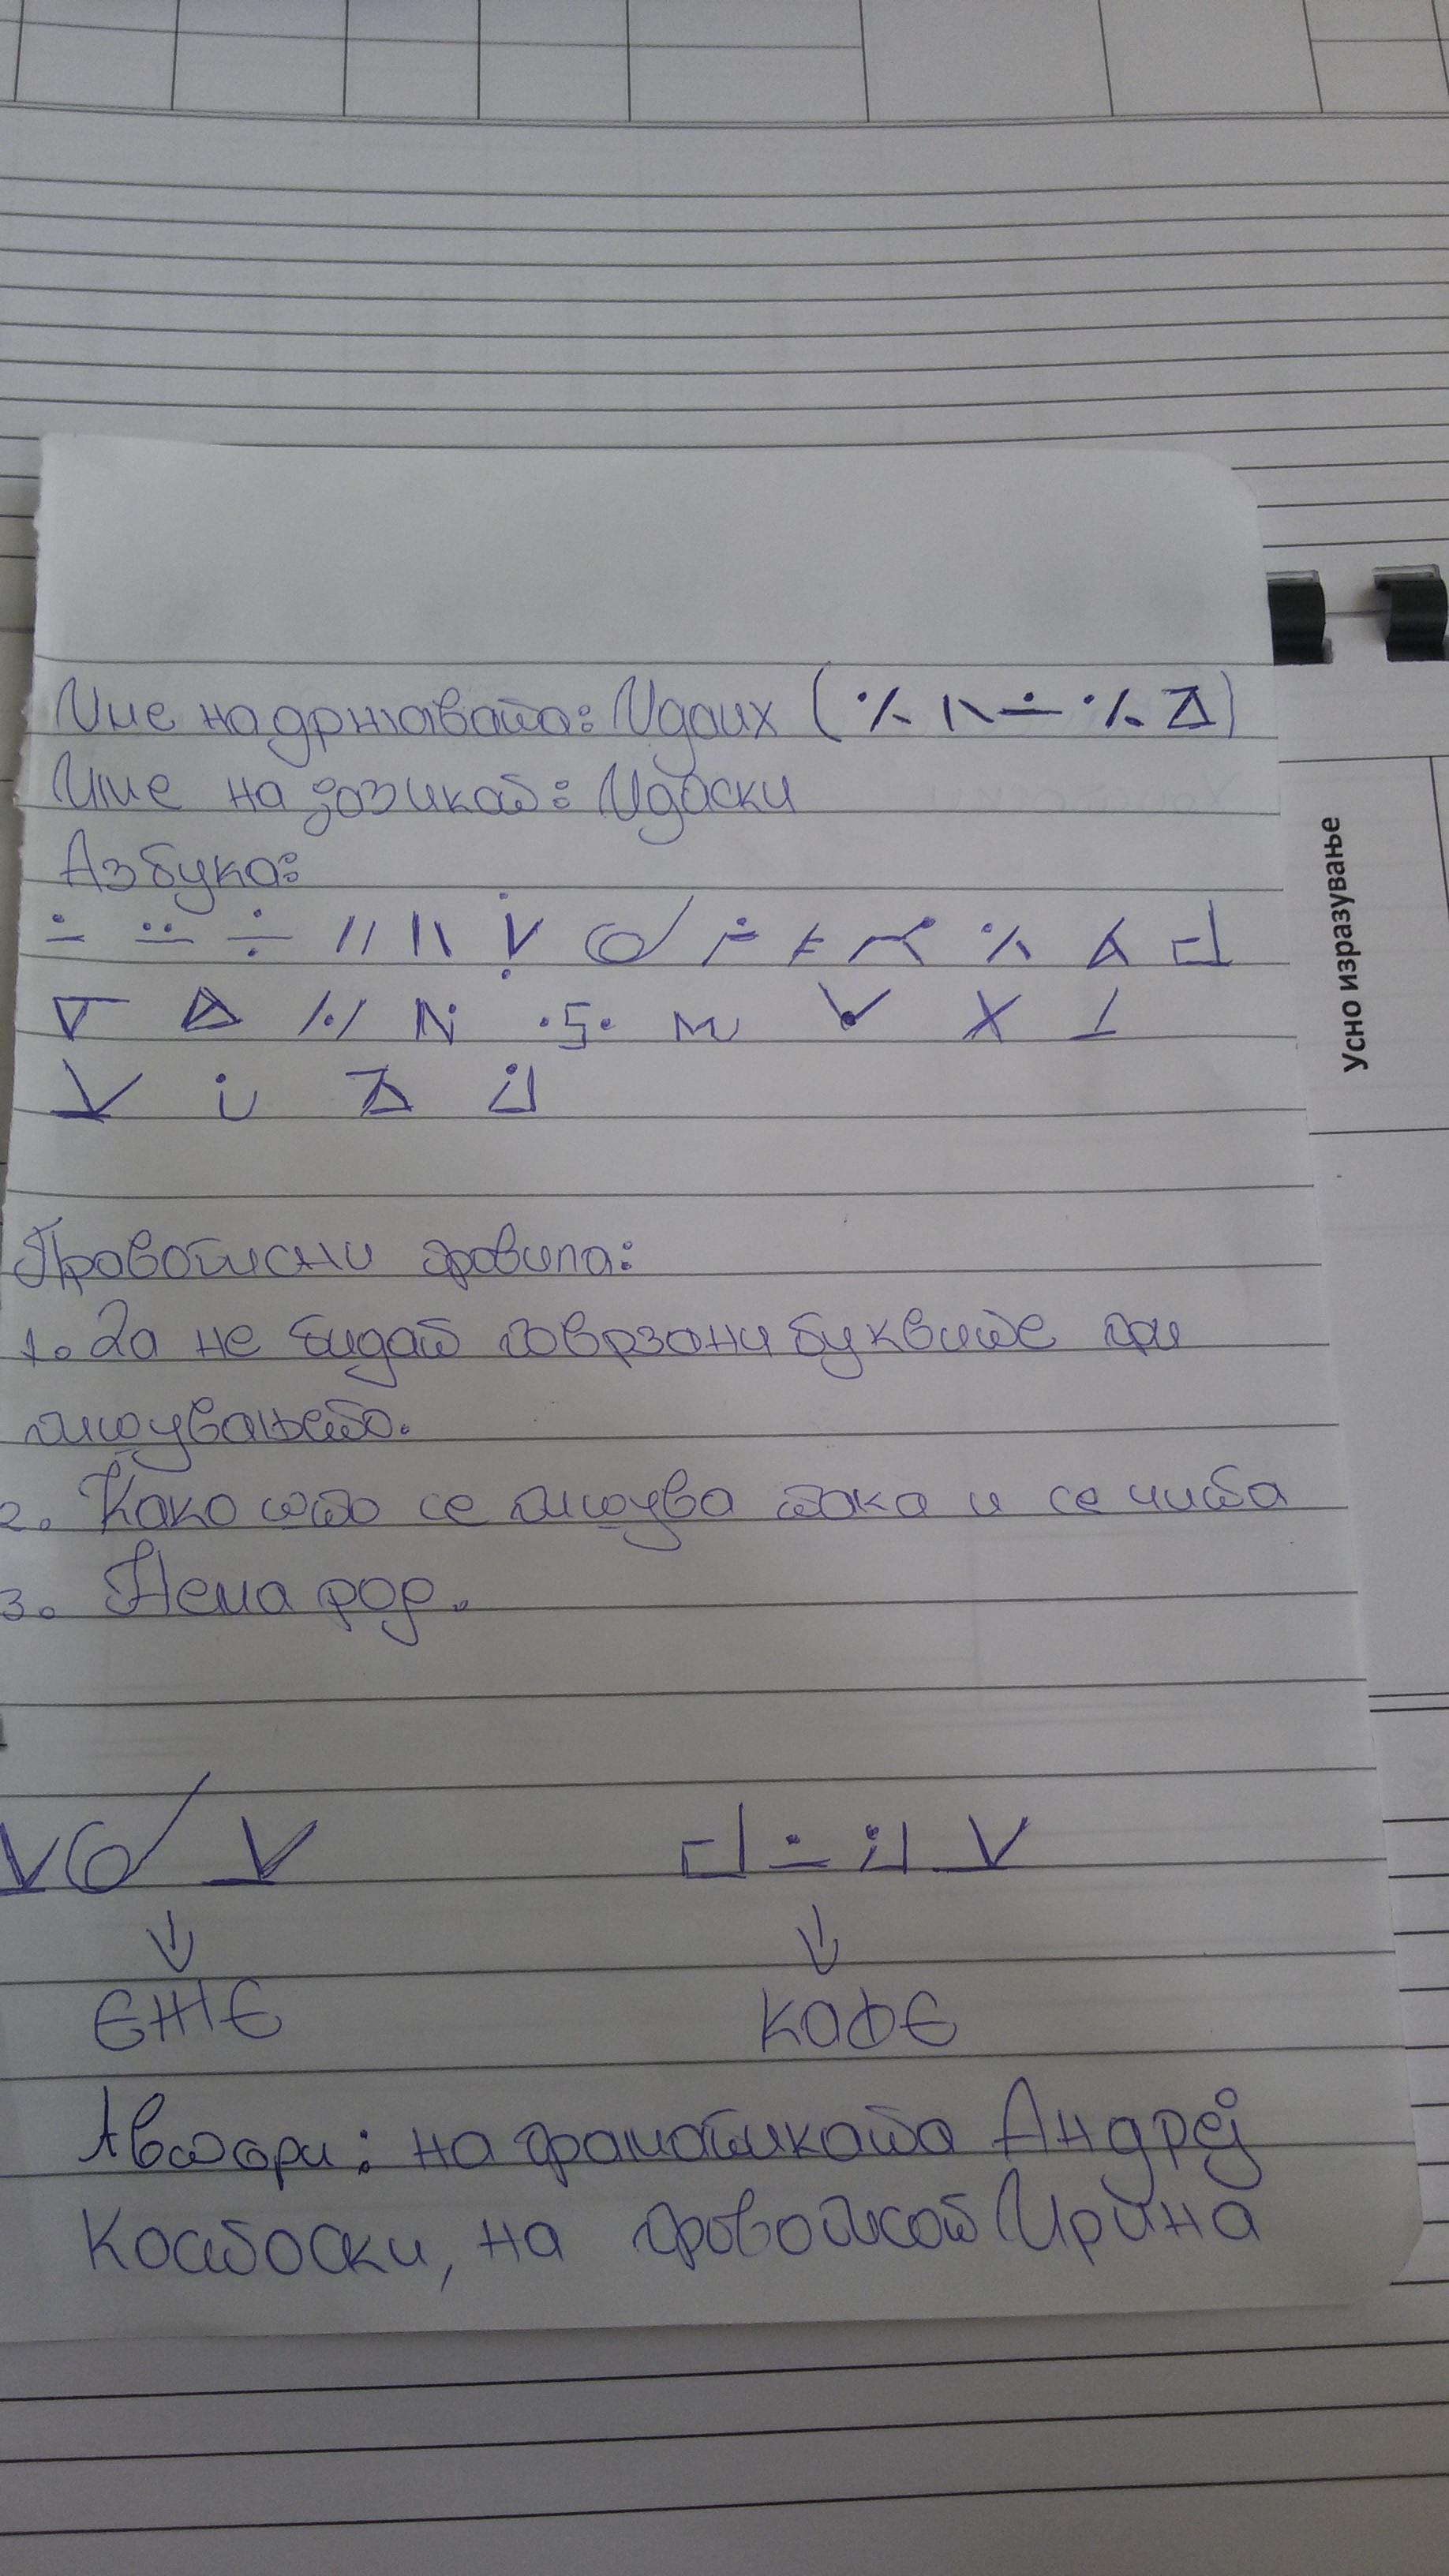 Име на државата: Идаих (
)
Име на јазикот: Идаски
Азбука:
Правописни правила:
1. Да не бидат поврзани буквите при
пишувањето.
2. Како што се пишува така и се чита
3. Нема род.
ЕЖЕ КАФЕ
Автори: на граматиката Андреј
Костоски, на правописот Ирина
Усно изразување